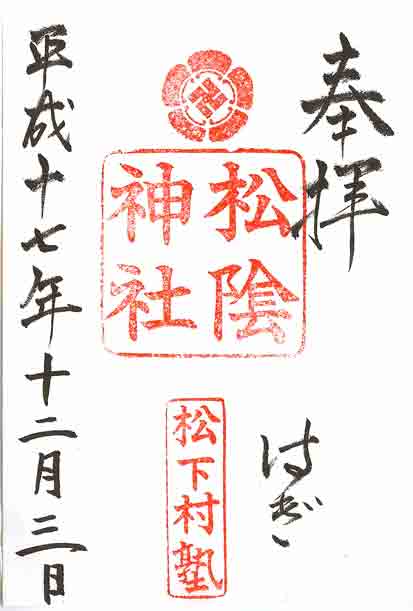 奉拝
はぎ
松陰
神社
松下村塾
平成十七年十二月三日